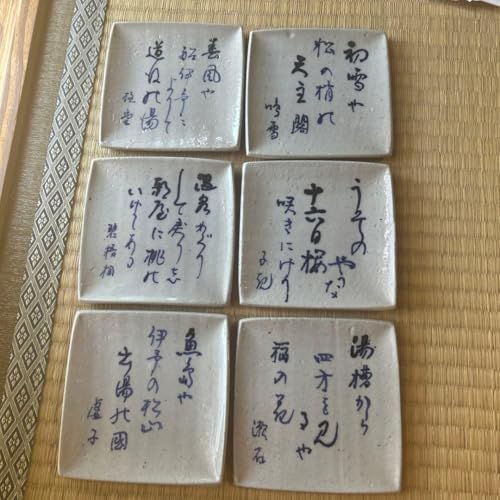 初雪や
松の梢の
天主閣
鳴雪
春風や
船伊予に
よりて
道後の湯
極堂
うそのやうな
十六日桜
咲きにけり
子規
温泉めぐり
して戻りし
部屋に桃の
いけてある
碧梧桐
湯槽から
四方を見るや
稲の花
漱石
魚島や
伊予の松山
出湯の國
虚子